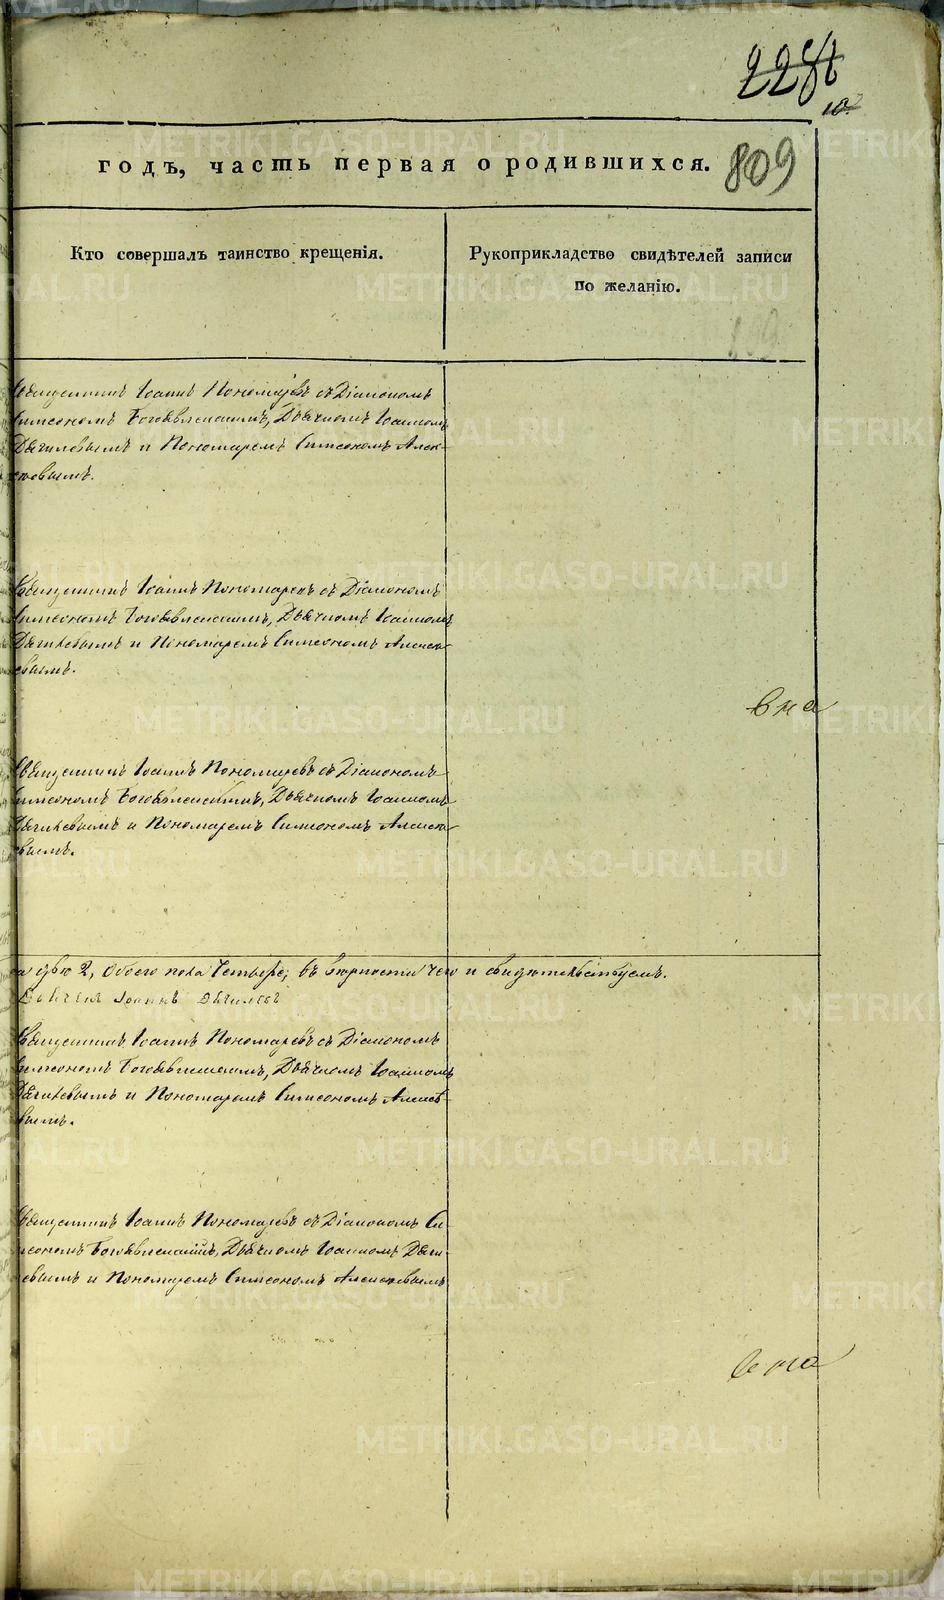 228
годъ, часть первая о родившихся. 809
Кто совершалъ таинство крещенія.
Рукоприкладство свидѣтелей записи
по желанію.
109
Священникъ Іоаннъ Пономаревъ съ Діакономъ
Симеономъ Богоявленскимъ, Дьячкомъ Іоанномъ
Дягилевымъ и Пономаремъ Симеономъ Алек-
сѣевымъ.
Священникъ Іоаннъ Пономаревъ съ Діакономъ
Симеономъ Богоявленскимъ, Дьячкомъ Іоанномъ
Дягилевымъ и Пономаремъ Симеономъ Алексѣ-
евымъ.
Священникъ Іоаннъ Пономаревъ съ Діакономъ
Симеономъ Богоявленскимъ, Дьячкомъ Іоанномъ
Дягилевымъ и Пономаремъ Симеономъ Алексѣ-
евымъ.
2, обоего пола четверо; въ вѣрности чего и свидѣтельствуемъ.
Іоаннъ Дягилевъ
Священникъ Іоаннъ Пономаревъ съ Діакономъ
Симеономъ Богоявленскимъ, Дьячкомъ Іоанномъ
Дягилевымъ и Пономаремъ Симеономъ Алексѣ-
евымъ.
Священникъ Іоаннъ Пономаревъ съ Діакономъ Си-
меономъ Богоявленскимъ, Дьячкомъ Іоанномъ Дяги-
левымъ и Пономаремъ Симеономъ Алексѣевымъ
METRIKI.GASO-URAL.RU